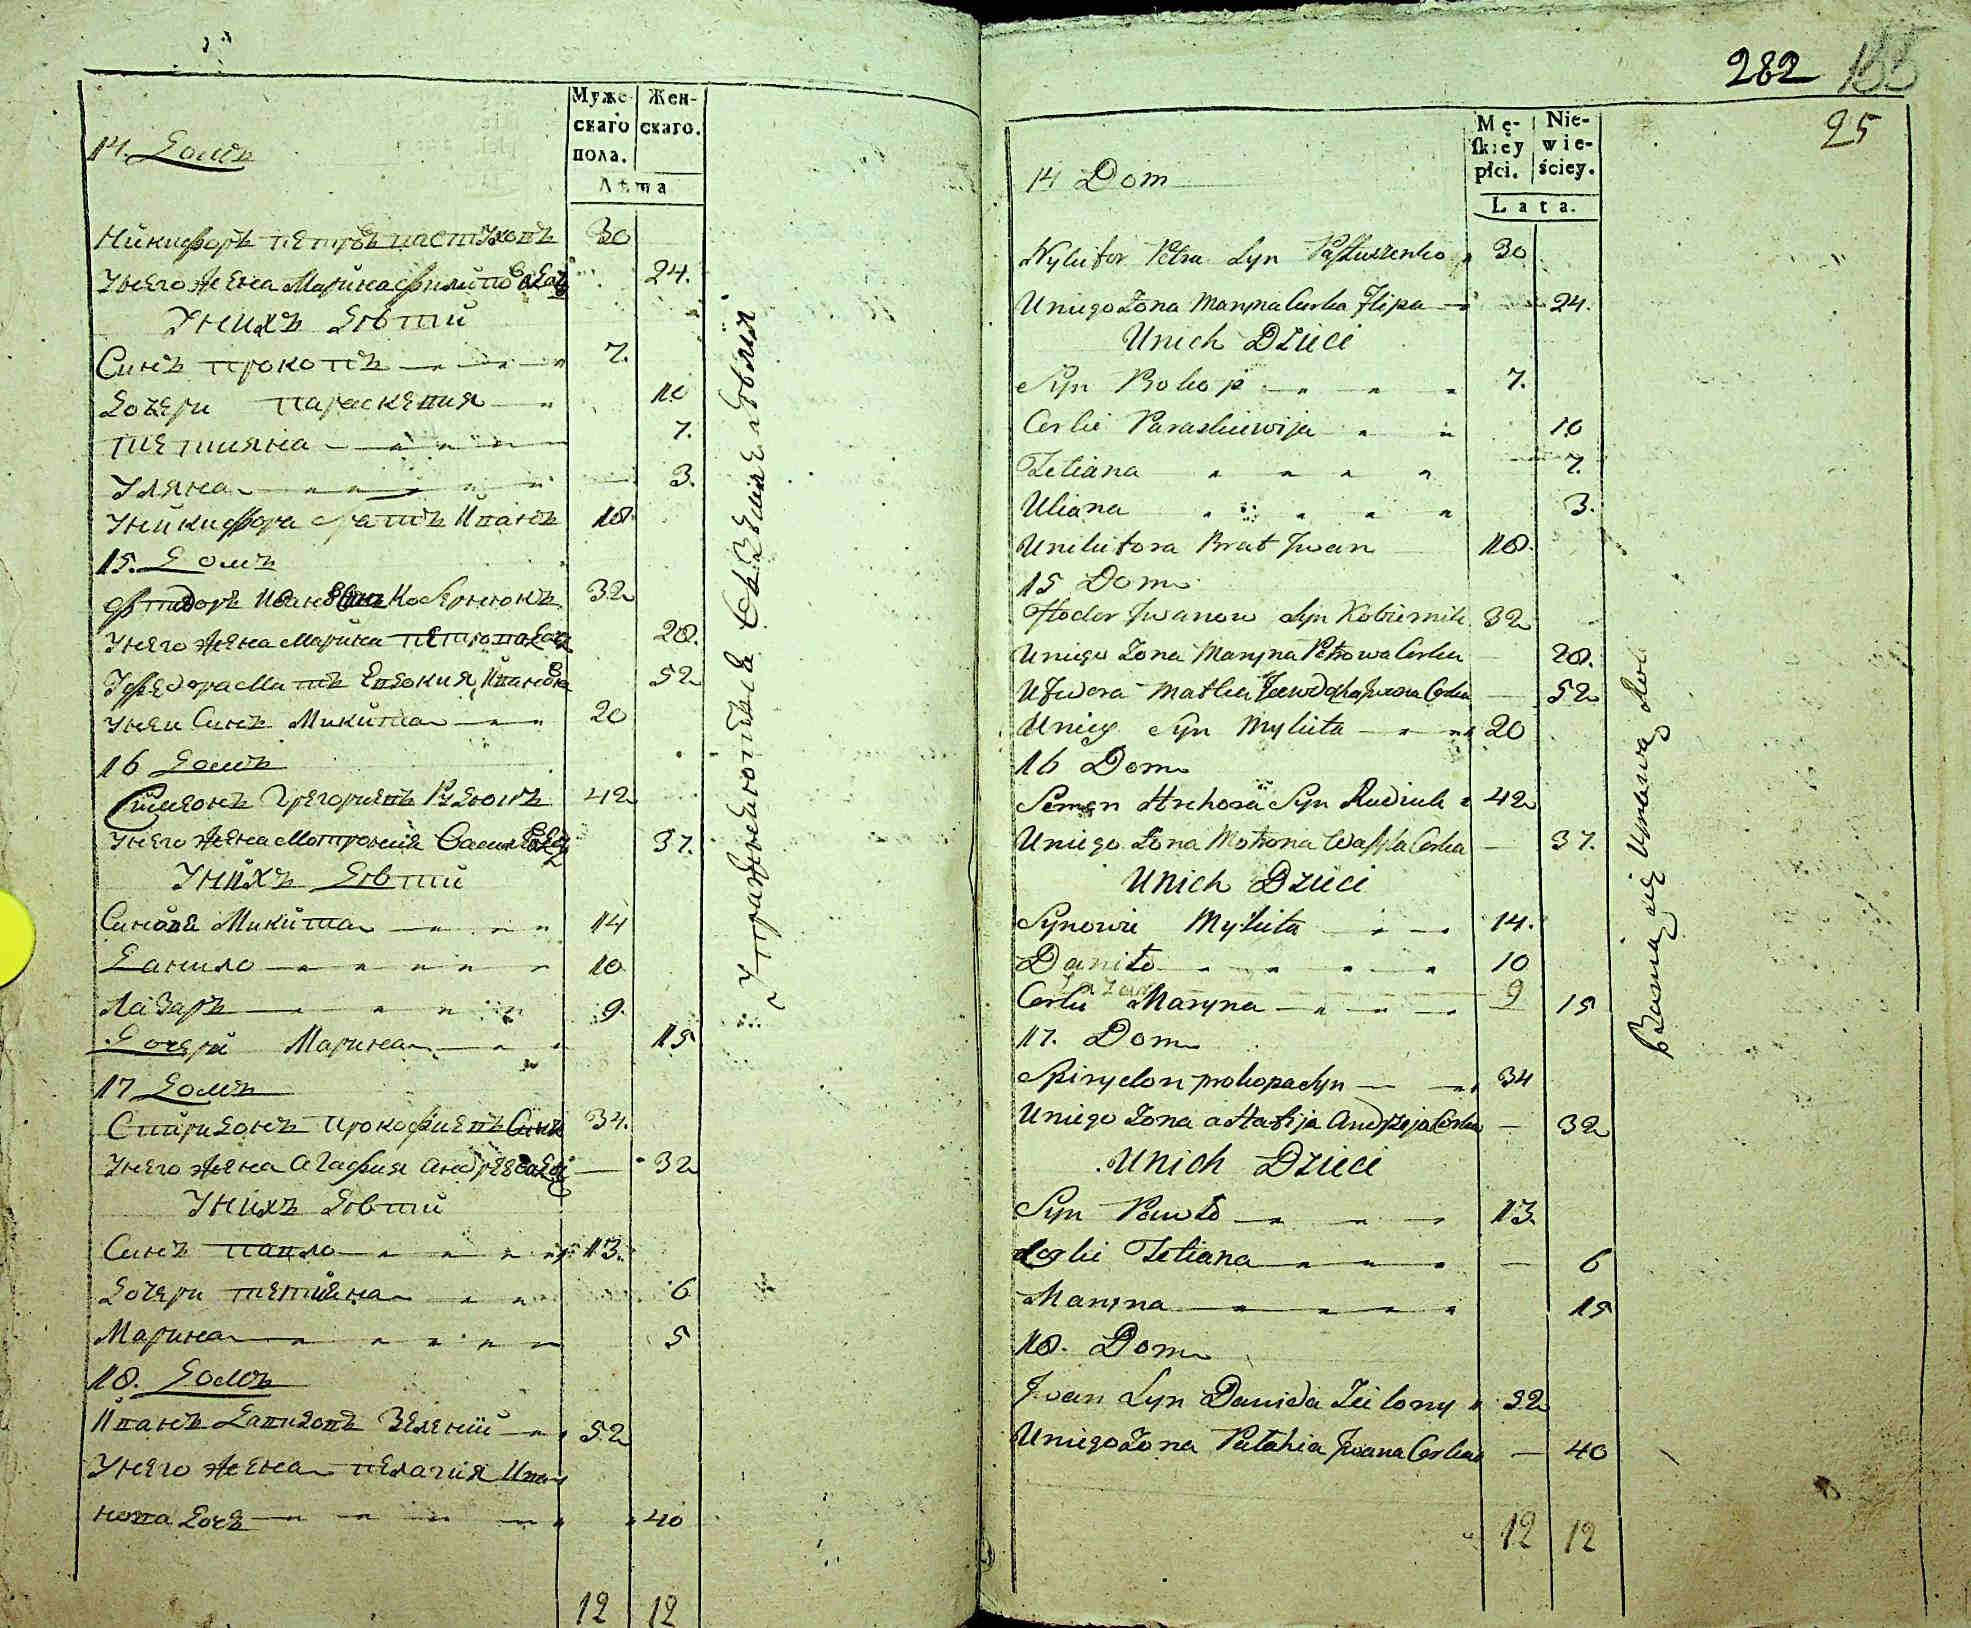 Муже-
скаго
пола.
Жен-
скаго.
Лѣта
14. Домъ
Никифоръ Петровъ Пастуховъ 30
Унего Жена Марина Филипова Дочь 24.
Унихъ Дѣти
Синъ Прокопъ 7.
Дочери Параскевия 10
Тетияна 7.
Уляна 3.
Уникифора братъ Иванъ 18.
15. Домъ
Фтидоръ Ивановъ Синъ 32
Унего Жена Марина Петрова Дочь 28.
Уфедора Мать Евдокия Иванова 52
Унеи Синъ Микита 20
16 Домъ
Симеонъ Григориевъ Рудюкъ 42
Унего Жена Мотрония Васил Дочь 37.
Унихъ Дѣти
Синовя Микита 14
Данило 10
Лазаръ 9.
Дочери Марина 15
17 Домъ
Спиридонъ Прокофиевъ Синъ 34.
Унего Жена Агафия Андреева Дочь 32
Унихъ Дѣти
Синъ Павло 13.
Дочери Тетияна 6
Марина 5
18. Домъ
Иванъ Давидовъ Зелений 52
Унего Жена Пелагия Ива
нова Дочъ 40
12 12
Упражняются въ Земледѣлия
282
25
Mę-
skiey
płci.
Nie-
wie-
ściey.
Lata.
14 Dom
Nykifor Petra Syn Pastuszenko 30
Uniego Żona Maryna Curka Flipa 24.
Unich Dzieci
Syn Prokop 7.
Corki Paraskiewija 10
Tetiana 7.
Uliana 3.
Unikifora Brat Jwan 18.
15 Dom
Jwanow Syn 32
Uniego Żona Maryna Petrowa Corka 28.
Ufedora Matka Jewdokia Jwana Corka 52
Uniey Syn Mykita 20
16 Dom
Semen Hrehora Syn Rudiuk 42
Uniego Żona Motrona Wasyla Corka 37.
Unich Dzieci
Synowie Mykita 14.
Daniło 10
Łazar 9
Corka Maryna 15
17. Dom
Spirydon Prokopa Syn 34
Uniego Żona Ahafija Andrzeja Corka 32
Unich Dzieci
Syn Pawło 13.
Corki Tetiana 6
Maryna 15
18. Dom
Jwan Syn Dawida Zielony 52
Uniego Żona Pałahia Jwana Corka 40
12 12
Bawią się Uprawą Roli